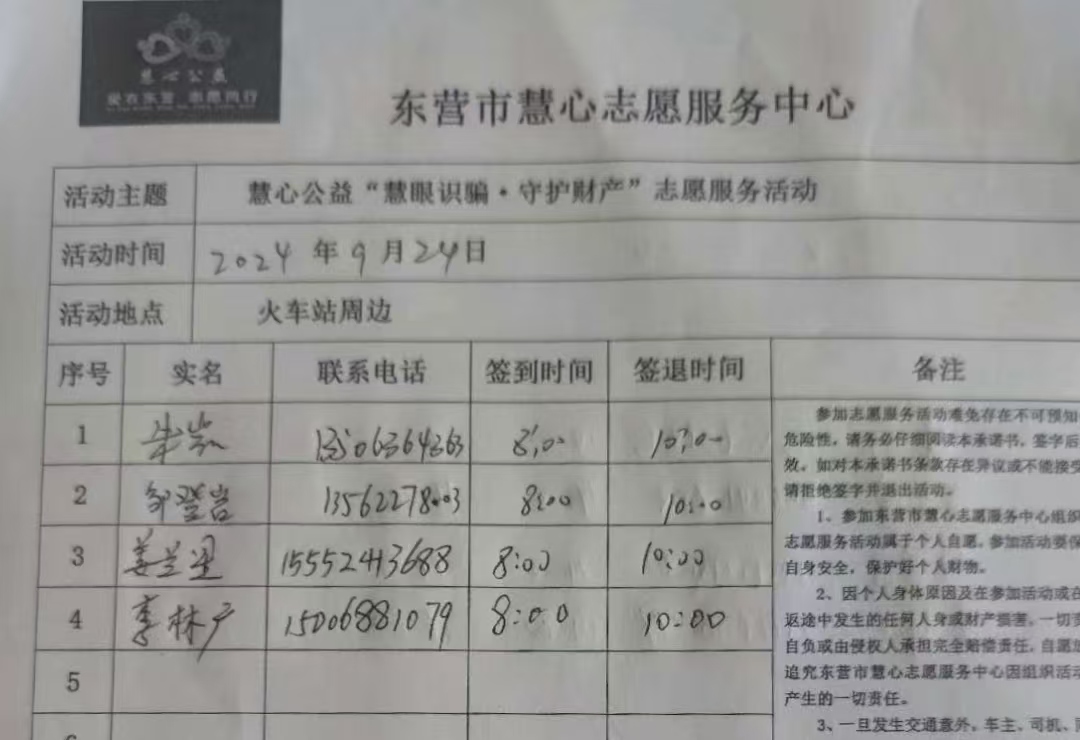 慧心公益
爱在东营 志愿同行
东营市慧心志愿服务中心
活动主题 慧心公益“慧眼识骗·守护财产”志愿服务活动
活动时间 2024年9月24日
活动地点 火车站周边
序号 实名 联系电话 签到时间 签退时间 备注
1 8:00 10:00
2 邹登岩 13562278003 8:00 10:00
3 姜兰星 15552413688 8:00 10:00
4 李林广 15006881079 8:00 10:00
5
参加志愿服务活动难免存在不可预知
危险性，请务必仔细阅读本承诺书，签字后
效。如对本承诺书条款存在异议或不能接受
请拒绝签字并退出活动。
1、参加东营市慧心志愿服务中心组织
志愿服务活动属于个人自愿。参加活动要保
自身安全，保护好个人财物。
2、因个人身体原因及在参加活动或在
返途中发生的任何人身或财产损害，一切责
自负或由侵权人承担完全赔偿责任，自愿放
追究东营市慧心志愿服务中心因组织活动
产生的一切责任。
3、一旦发生交通意外，车主、司机、